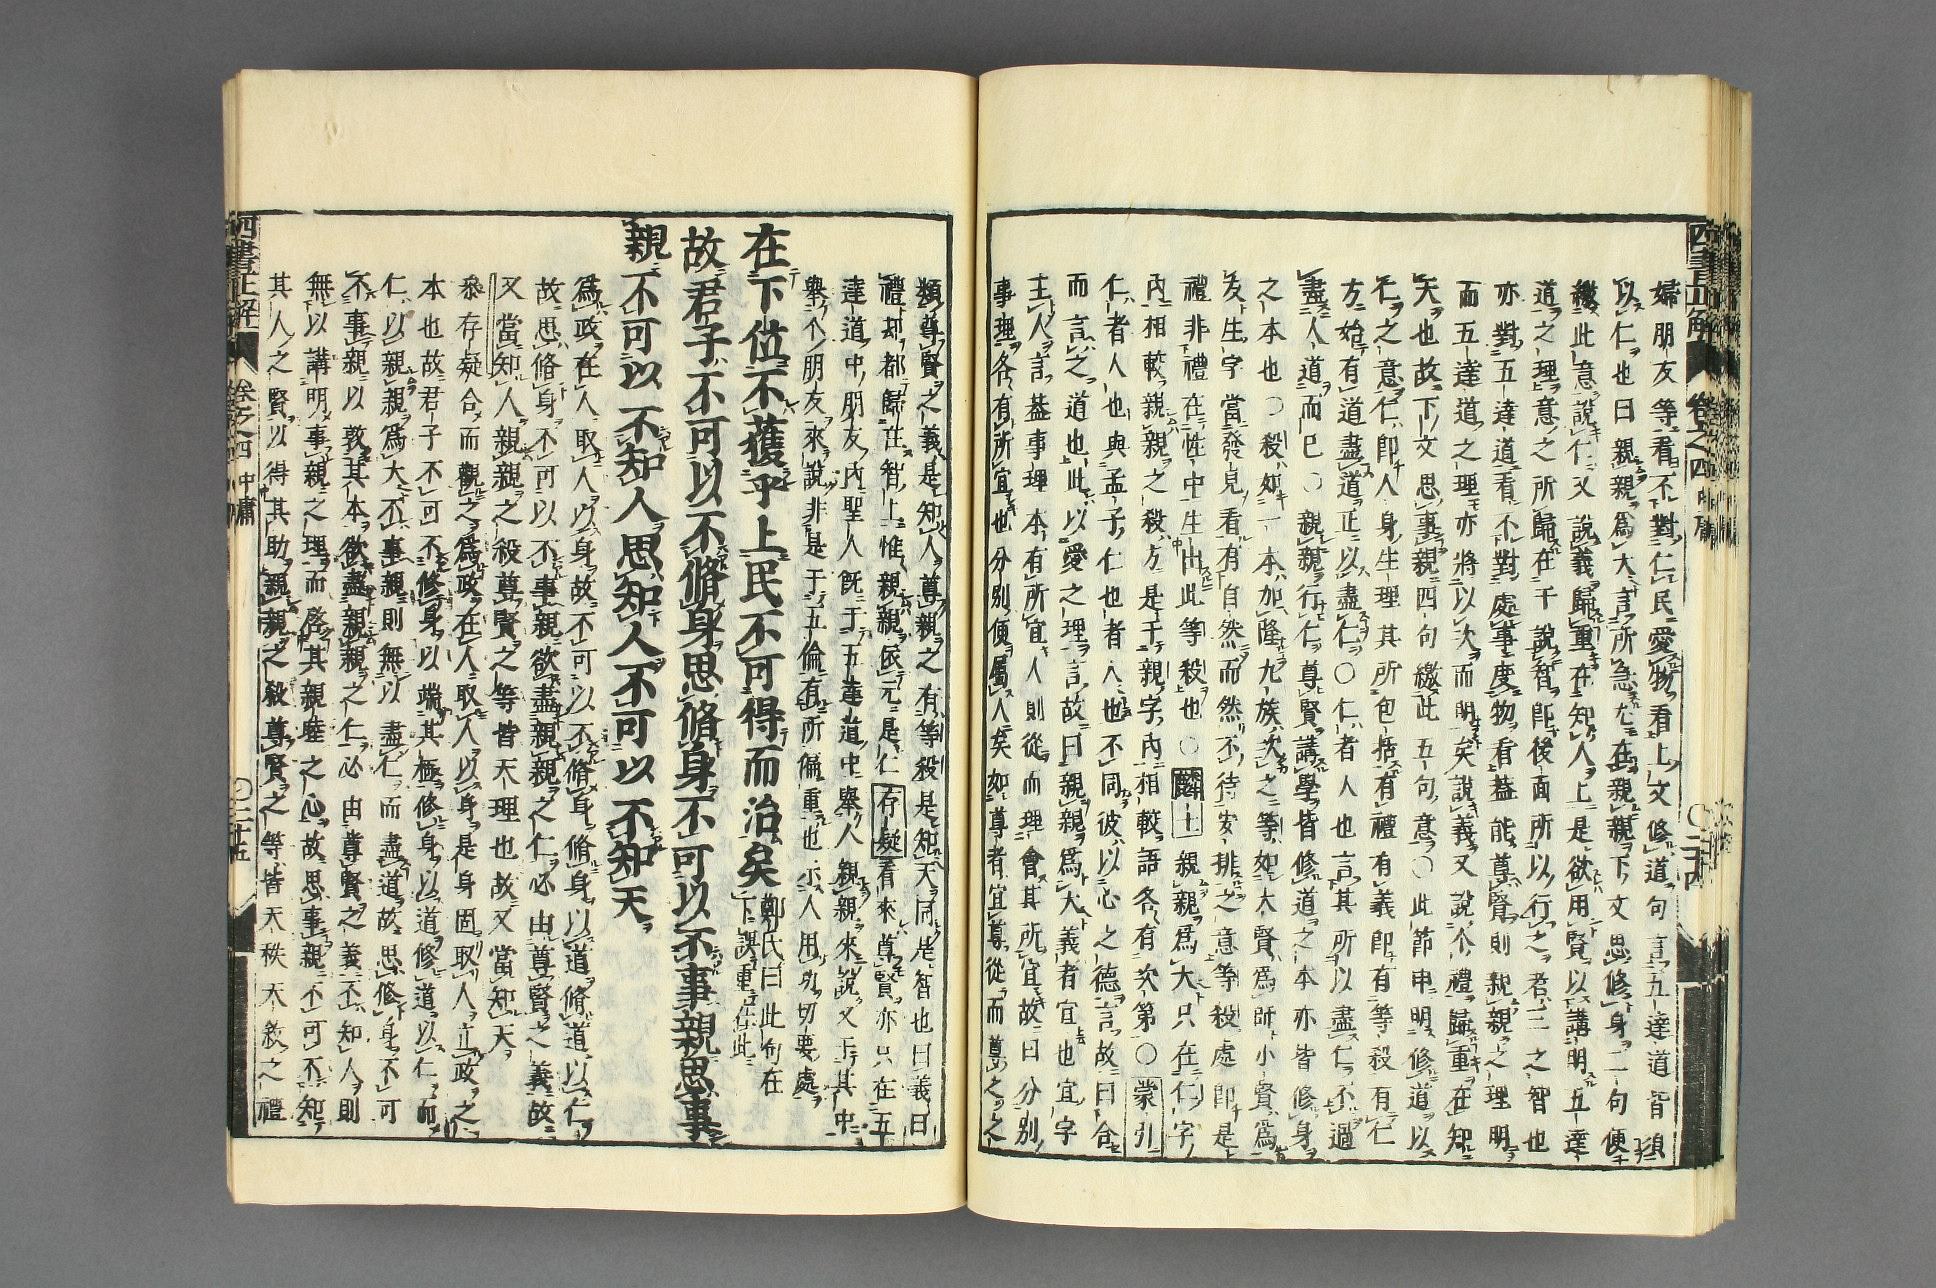 四書正解 卷之四 中庸 〇二十四
婦朋友等看不對仁民愛物看上文修道句言五達道皆須
以仁也曰親親爲大言所急尤在親親下文思修身二句便
繳此意說仁又說義歸重在知人上是欲用賢以講明五達
道之理意之所歸在于說智卽後面所以行之君二之智也
亦對五達道看不對處事度物看蓋能尊賢則親親之理明
而五達道之理亦將以次而明矣說義又說个禮歸重在知
天也故下文思事親四句繳此五句意〇此節申明修道以
仁之意仁卽人身生理其所包括有禮有義卽有等殺有仁
方始有道盡道正以盡仁〇仁者人也言其所以盡仁不過
盡人道而已〇親親行仁尊賢講學皆修道之本亦皆修身
之本也〇殺如一本加隆九族次之等如大賢爲師小賢爲
友生字當發見看有自然而然不待安排之意等殺處卽是
禮非禮在性中生出此等殺也〇麟士親親爲大只在仁字
內相較親親之殺方是于親字內相較語各有次第〇蒙引
仁者人也與孟子仁也者人也不同彼以心之德言故曰合
而言之道也此以愛之理言故曰親親爲大義者宜也宜字
主人言蓋事理本有所宜人則從而理會其所宜故曰分別
事理各有所宜也分別便屬人矣如尊者宜尊從而尊之之
類尊賢之義是知人尊親之有等殺是知天同是智也曰義曰
禮却都歸在智上惟親親依元是仁存疑看來尊賢亦只在五
達道中朋友內聖人旣于五達道中舉人親親來說又于其中
舉个朋友來說非是于五倫有所偏重也示人用功切要處
在下位不獲乎上民不可得而治矣鄭氏曰此句在下誤重在此
故君子不可以不脩身思脩身不可以不事親思事
親不可以不知人思知人不可以不知天
爲政在人取人以身故不可以不脩身脩身以道脩道以仁
故思脩身不可以不事親欲盡親親之仁必由尊賢之義故
又當知人親親之殺尊賢之等皆天理也故又當知天
叅存疑合而觀之爲政在人取人以身是身固取人立政之
本也故君子不可不修身以端其極修身以道修道以仁而
仁以親親爲大不事親則無以盡仁而盡道故思修身不可
不事親以敦其本欲盡親親之仁必由尊賢之義不知人則
無以講明事親之理而啓其親睦之心故思事親不可不知
其人之賢以得其助親親之殺尊賢之等皆天秩天敘之禮
四書正解 卷之四 中庸 〇二十五